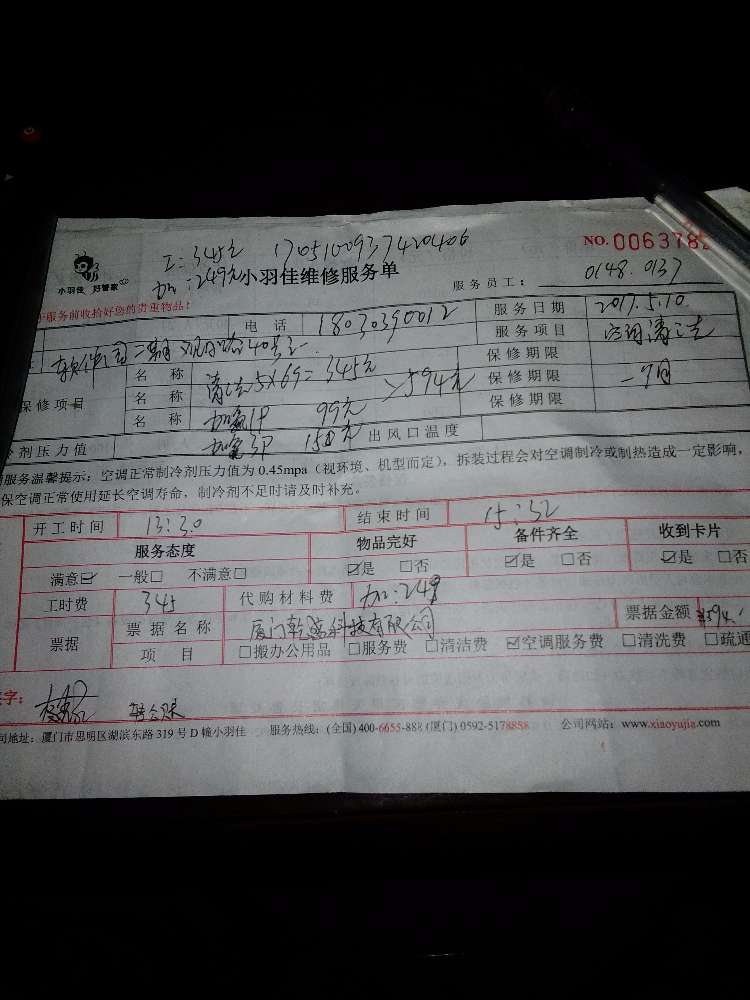 工:345元 1705100937420406
加:249元 小羽佳维修服务单
NO.0063782
小羽佳 好管家
服务员工: 0148.0137
服务前收拾好您的贵重物品!
电话 18030390012 服务日期 2017.5.10
软件园二期观日路40号 服务项目 空调清洗
保修项目 名称 清洗5X69=345元 >594元 保修期限
名称 加氟1P 99元 保修期限 一个月
名称 加氟3P 150元 保修期限
剂压力值 出风口温度
服务温馨提示:空调正常制冷剂压力值为 0.45mpa(视环境、机型而定),拆装过程会对空调制冷或制热造成一定影响,
保空调正常使用延长空调寿命,制冷剂不足时请及时补充。
开工时间 13:30 结束时间 15:32
服务态度 物品完好 备件齐全 收到卡片
满意☑ 一般□ 不满意□ ☑是 □否 ☑是 □否 ☑是 □否
工时费 345 代购材料费 加:249
票据 票据名称 厦门乾 科技有限公司 票据金额 ¥594.-
项目 □搬办公用品 □服务费 □清洁费 ☑空调服务费 □清洗费 □疏通
字: 转公账
司地址:厦门市思明区湖滨东路 319 号 D 幢小羽佳 服务热线:(全国) 400-6655-888 (厦门) 0592-5178858 公司网站:www.xiaoyujia.com